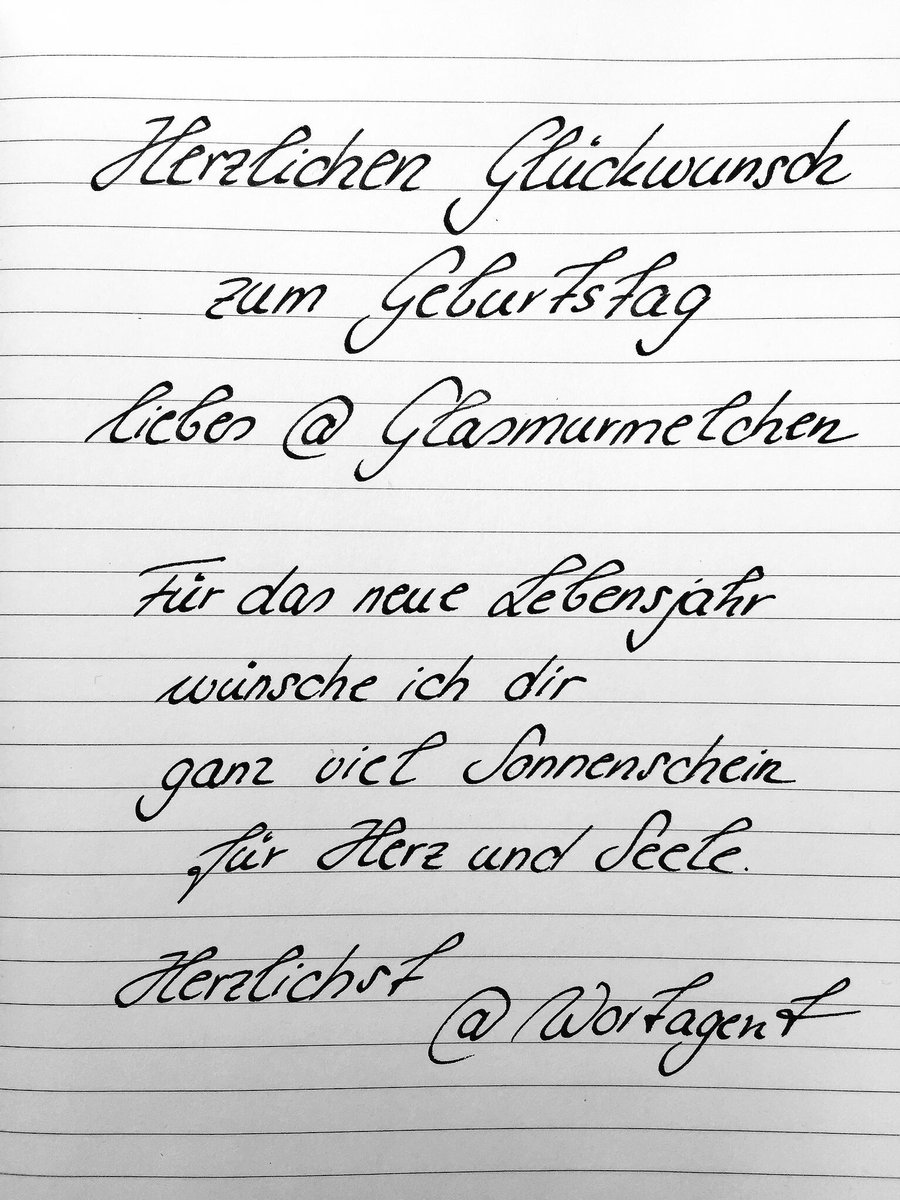 Herzlichen Glückwunsch
zum Geburtstag
liebes @Glasmurmelchen
Für das neue Lebensjahr
wünsche ich dir
ganz viel Sonnenschein
für Herz und Seele.
Herzlichst
@Wortagent